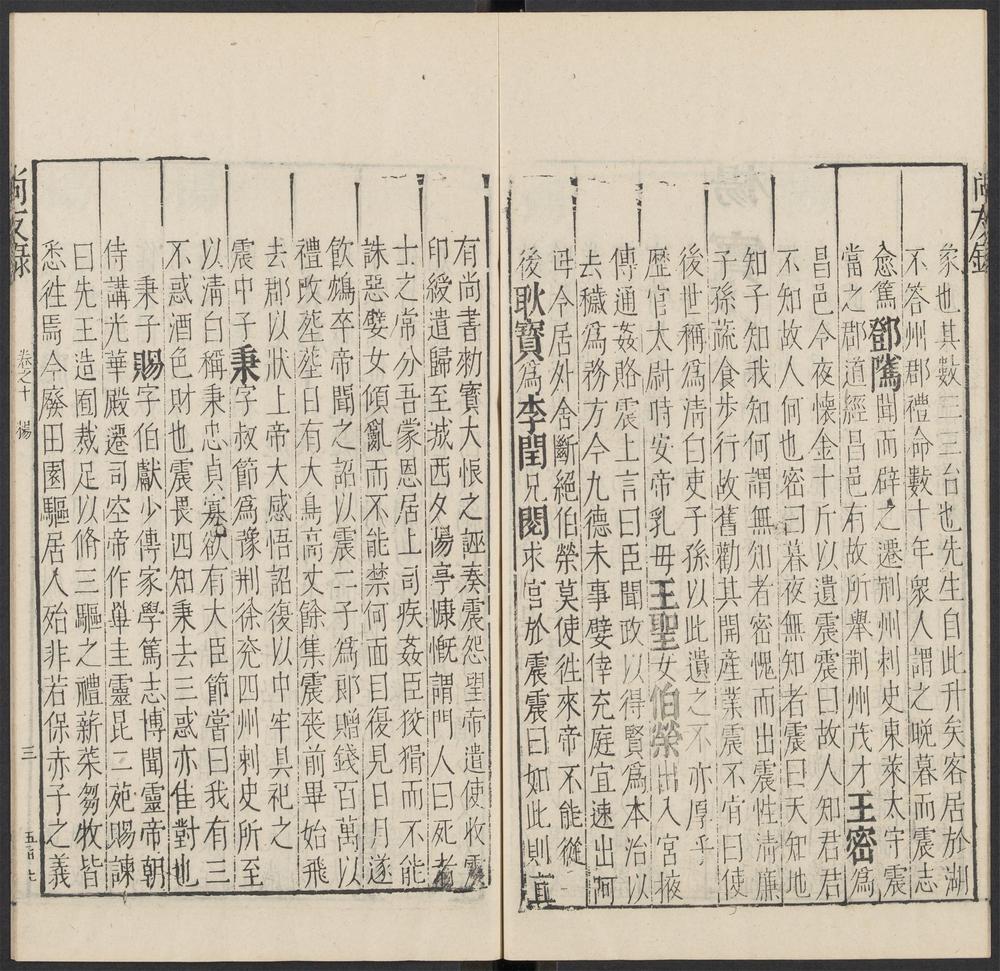 尚友錄
象也其數三三台也先生自此升矣客居於湖
不答州郡禮命數十年衆人謂之晚暮而震志
愈篤鄧隲聞而辟之遷荆州刺史東萊太守震
當之郡道經昌邑有故所舉荆州茂才王密爲
昌邑令夜懷金十斤以遺震震曰故人知君君
不知故人何也密曰暮夜無知者震曰天知地
知子知我知何謂無知者密愧而出震性清廉
子孫蔬食步行故舊勸其開産業震不肯曰使
後世稱爲清白吏子孫以此遺之不亦厚乎
歷官太尉時安帝乳母王聖女伯榮出入宮掖
傳通姦賂震上言曰臣聞政以得賢爲本治以
去穢爲務方今九德未事嬖倖充庭宜速出阿
母令居外舍斷絕伯榮莫使徃來帝不能從
後耿寶爲李閏兄閱求官於震震曰如此則宜
有尚書勑寶大恨之誣奏震怨望帝遣使收震
印綬遣歸至城西夕陽亭慷慨謂門人曰死者
士之常分吾蒙恩居上司疾姦臣狡猾而不能
誅惡嬖女傾亂而不能禁何面目復見日月遂
飮鴆卒帝聞之詔以震二子爲郞贈錢百萬以
禮改塟塟日有大鳥高丈餘集震喪前畢始飛
去郡以狀上帝大感悟詔復以中牢具祀之
震中子秉字叔節爲豫荆徐兖四州刺史所至
以淸白稱秉忠貞寡欲有大臣節當曰我有三
不惑酒色財也震畏四知秉去三惑亦佳對也
秉子賜字伯獻少傳家學篤志博聞靈帝朝
侍講光華殿遷司空帝作畢圭靈昆二苑賜諫
曰先王造囿裁足以脩三驅之禮薪菜芻牧皆
悉徃焉今廢田園驅居人殆非若保赤子之義
尚友錄
卷之十 楊
三